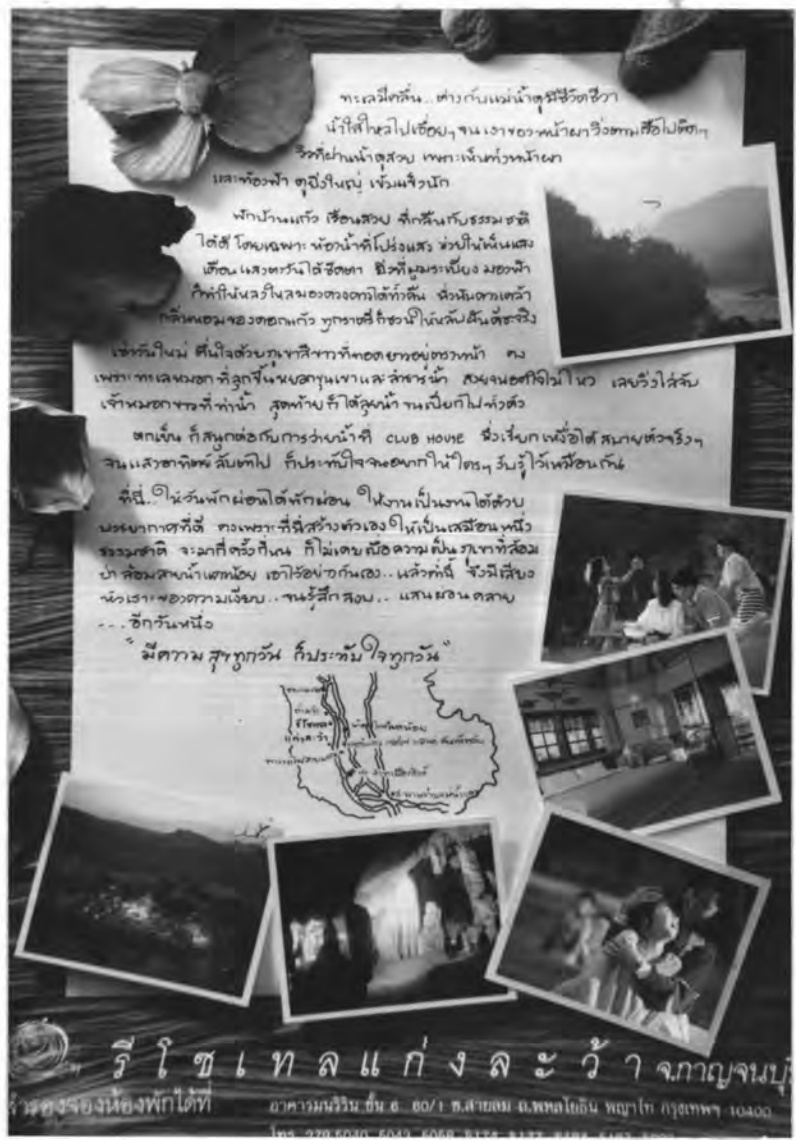 ทะเลมีคลื่น..ต่างกับแม่น้ำดูมีชีวิตชีวา
น้ำใสไหลไปเรื่อยๆ จนเงาของหน้าผาวิ่งตามเรือไปติดๆ
วิวที่ผ่านน้ำดูสวย เพราะเห็นทั้งหน้าผา
และท้องฟ้า ดูยิ่งใหญ่ เข้มแข็งนัก
พักบ้านแก้ว เรือนสวย ที่กลืนกับธรรมชาติ
ได้ดี โดยเฉพาะ ห้องน้ำที่โปร่งแสง ช่วยให้เห็นแสง
เดือน แสงตะวันได้ชัดตา ยิ่งที่มุมระเบียง มองฟ้า
ก็ทำให้หลงใหลมองดวงดาวได้ทั้งคืน
กลิ่นหอมของดอกแก้ว ทุกราตรีก็ชวนให้หลับฝันดีซะจริง
เช้าวันใหม่ ตื่นใจด้วยภูเขาสีขาวที่ทอดยาวอยู่ตรงหน้า คง
เพราะทะเลหมอกที่ลุกขึ้นหยอกขุนเขาและลำธารน้ำ สวยจนอดใจไม่ไหว เลยวิ่งไล่จับ
เจ้าหมอกขาวที่ท่าน้ำ สุดท้ายก็ได้ลุยน้ำ จนเปียกไปทั้งตัว
ตกเย็น ก็สนุกต่อกับการว่ายน้ำที่ CLUB HOUSE ซึ่งเรียกเหงื่อได้สบายตัวจริงๆ
จนแสงอาทิตย์ลับตาไป ก็ประทับใจจนอยากให้ใครๆ รับรู้ไว้เหมือนกัน
ที่นี่..ให้วันพักผ่อนได้พักผ่อน ให้งานเป็นงานได้ด้วย
บรรยากาศที่ดี คงเพราะที่นี่สร้างตัวเองให้เป็นเสมือนหนึ่ง
ธรรมชาติ จะมากี่ครั้งกี่หน ก็ไม่เคยเบื่อความเป็นภูเขาที่ล้อม
ป่า ล้อมสายน้ำแควน้อย เอาไว้อย่างกันเอง..แล้วค่ำนี้ จึงมีเสียง
หัวเราะของความเงียบ..จนรู้สึกสงบ..แสนผ่อนคลาย
...อีกวันหนึ่ง
"มีความสุขทุกวัน ก็ประทับใจทุกวัน"
รีโซเทลแก่งละว้า จ.กาญจนบุรี
สำรองจองห้องพักได้ที่ อาคารมนริริน ชั้น 6 60/1 ซ.สายลม ถ.พหลโยธิน พญาไท กรุงเทพฯ 10400